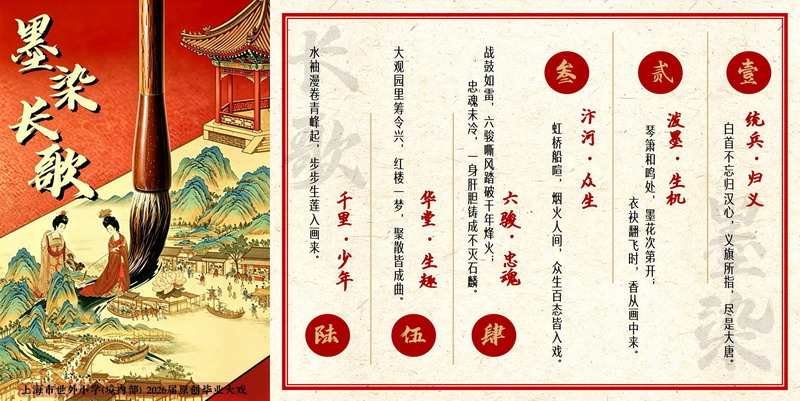 墨染长歌
上海市世外小学(境内部) 2026届原创毕业大戏
壹
统兵·归义
白首不忘归汉心，义旗所指，尽是大唐。
贰
泼墨·生机
琴箫和鸣处，墨花次第开；
衣袂翻飞时，香从画中来。
叁
汴河·众生
虹桥船喧，烟火人间，众生百态皆入戏。
肆
六骏·忠魂
战鼓如雷，六骏嘶风踏破千年烽火；
忠魂未冷，一身肝胆铸成不灭石麟。
伍
华堂·生趣
大观园里筹令兴，红楼一梦，聚散皆成曲。
陆
千里·少年
水袖漫卷青峰起，步步生莲入画来。
长歌
墨染